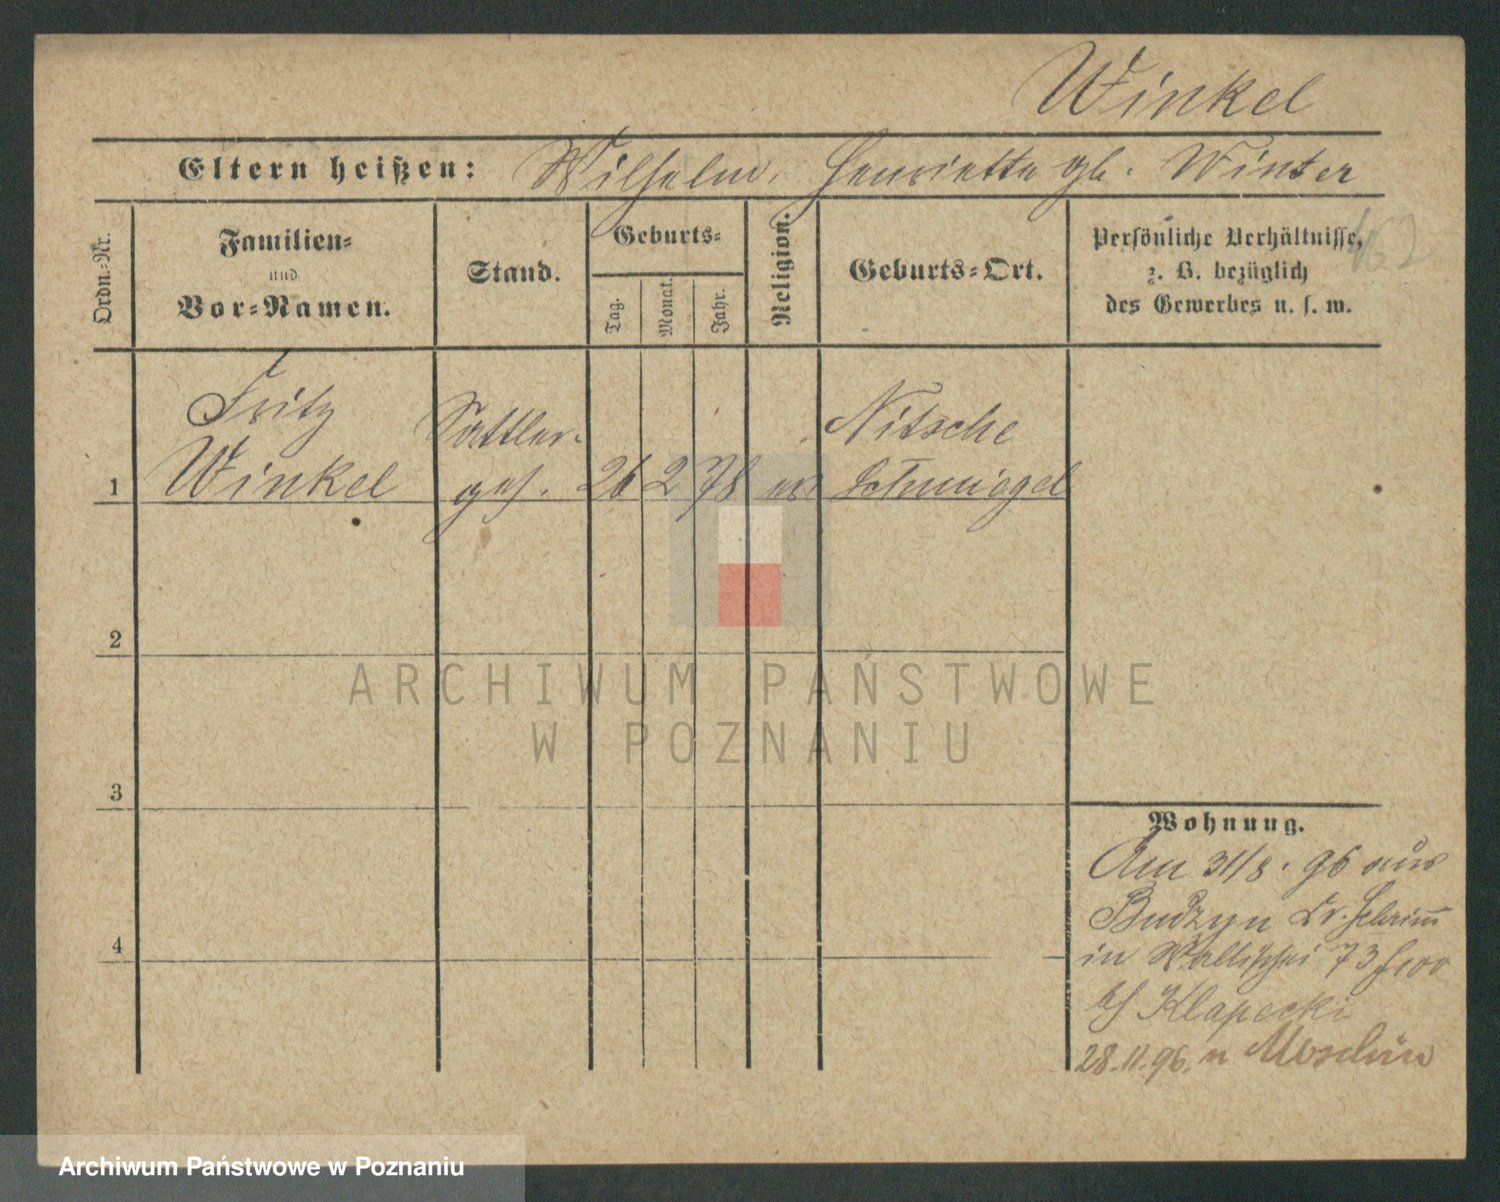 Winkel
Eltern heißen: Wilhelm, Henriette gb. Winter
Ordn.-Nr.
Familien-
und
Vor-Namen.
Stand.
Geburts-
Tag.
Monat.
Jahr.
Religion.
Geburts-Ort.
Persönliche Verhältnisse,
z. B. bezüglich
des Gewerbes u. s. w.
1
Fritz
Winkel
Sattler-
ges.
26
2
78
ev
Nitsche
Schmiegel
2
3
4
Wohnung.
Am 31/8. 96 aus
Budzyn Kr. Schrim̄
in Wallischei 73
bs Klapecki
28.11.96. n Moschin
ARCHIWUM PAŃSTWOWE
W POZNANIU
Archiwum Państwowe w Poznaniu